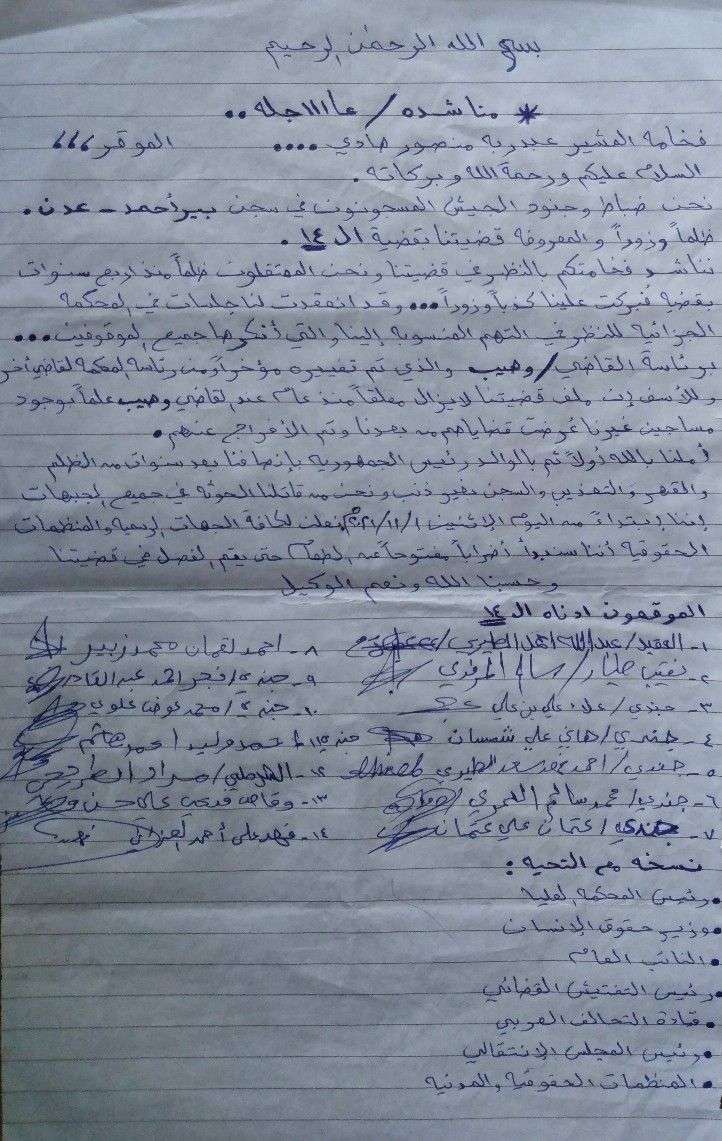 بسم الله الرحمن الرحيم
* مناشده/عاااااجله ..
فخامة المشير عبدربه منصور هادي .... الموقر ،،،
السلام عليكم ورحمة الله وبركاته .
نحن ضباط وجنود الجيش المسجونون في سجن بيرأحمد - عدن .
ظلماً وزوراً والمعروفه قضيتنا بقضية ال ١٤ .
نناشد فخامتكم بالنظر في قضيتنا ونحن المعتقلون ظلماً منذ اربع سنوات
بقضيه فبركت علينا كذباً وزوراً ... وقد انعقدت لنا جلسات في المحكمة
الجزائية للنظر في التهم المنسوبه إلينا والتي أنكرها جميع الموقوفين ...
برئاسة القاضي/وهيب والذي تم تغييره مؤخراً من رئاسة المحكمة لقاضي آخر
وللأسف إن ملف قضيتنا لايزال معلقاً منذ عام عند القاضي وهيب علماً بوجود
مساجين غيرنا عُرضت قضاياهم من بعدنا وتم الأفراج عنهم .
أملنا بالله أولاً ثم بالوالد رئيس الجمهوريه بإنصافنا بعد سنوات من الظلم
والقهر والتعذيب والسجن بغير ذنب ونحن من قاتلنا الحوثه في جميع الجبهات
إننا إبتداءً من اليوم الإثنين ٢٠٢١/١١/١ نعلن لكافة الجهات الرسميه والمنظمات
الحقوقيه أننا سنبدأ أضراباً مفتوحاً عن الطعام حتى يتم الفصل في قضيتنا
وحسبنا الله ونعم الوكيل
الموقعون ادناه ال ١٤
١- العقيد/عبدالله اهل الطيري/ ٨- احمد لقمان محمد زبير
٢- نقيب طيار/سالم ٩- جندي/فجر احمد عبدالقادر
٣- جندي/علاء علي بن علي ١٠- جندي/محمد عوض علوي
٤- جندي/هاني علي شمسان ١١- جندي/احمد وليد احمد هاثم
٥- جندي/احمد سعد الطيري ١٢- الشرطي/مراد
٦- جندي/محمد سالم العمري ١٣- وقاص علي حسن
٧- جندي/عثمان علي عثمان ١٤- فهد علي أحمد
نسخه مع التحيه :
• رئيس المحكمه العليا
• وزير حقوق الإنسان
• النائب العام
• رئيس التفتيش القضائي
• قيادة التحالف العربي
• رئيس المجلس الإنتقالي
• المنظمات الحقوقيه والمدنيه